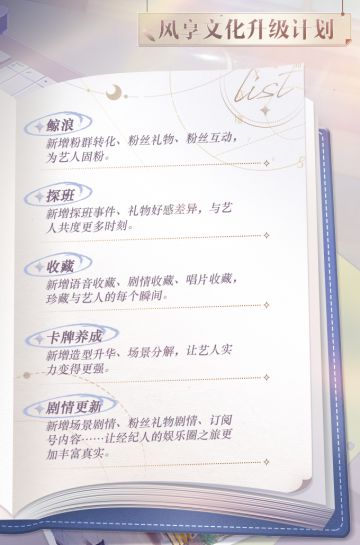 风享文化升级计划
list
鲸浪
新增粉群转化、粉丝礼物、粉丝互动，
为艺人固粉。
探班
新增探班事件、礼物好感差异，与艺
人共度更多时刻。
收藏
新增语音收藏、剧情收藏、唱片收藏，
珍藏与艺人的每个瞬间。
卡牌养成
新增造型升华、场景分解，让艺人实
力变得更强。
剧情更新
新增场景剧情、粉丝礼物剧情、订阅
号内容……让经纪人的娱乐圈之旅更
加丰富真实。